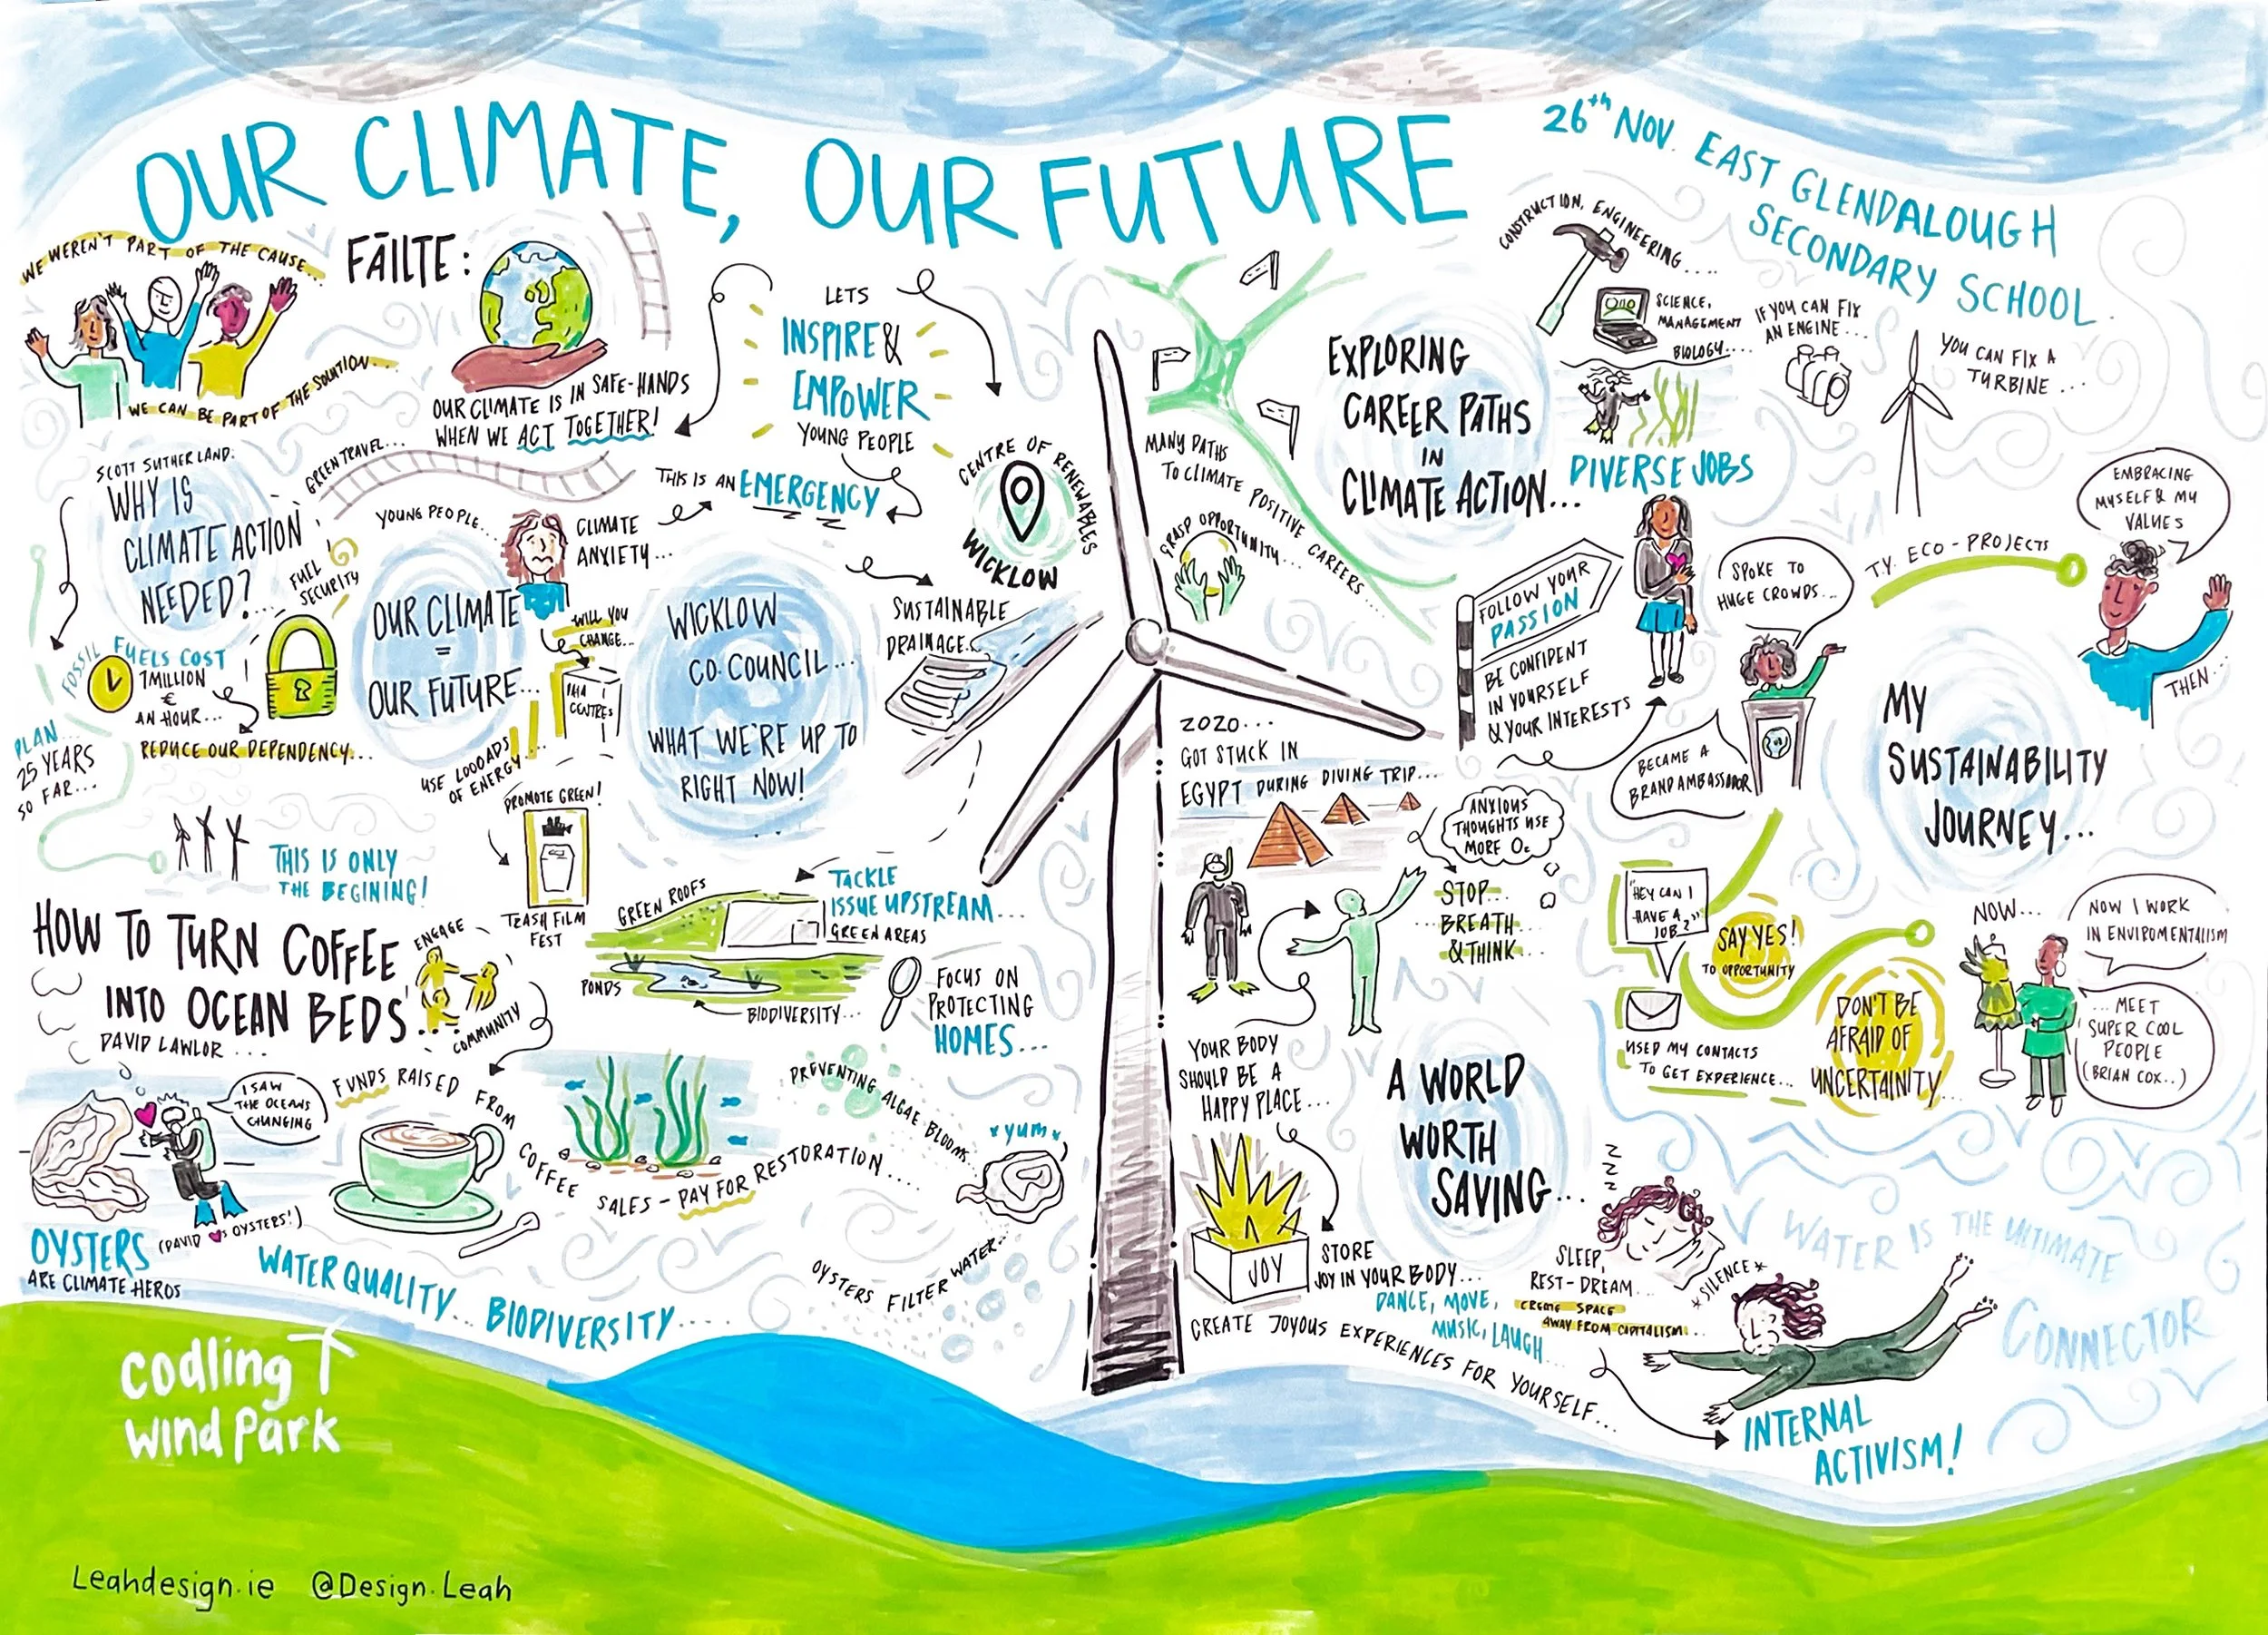 OUR CLIMATE, OUR FUTURE
26th NOV. EAST GLENDALOUGH
SECONDARY SCHOOL
WE WEREN'T PART OF THE CAUSE...
WE CAN BE PART OF THE SOLUTION...
FĀILTE:
OUR CLIMATE IS IN SAFE-HANDS
WHEN WE ACT TOGETHER!
LETS
INSPIRE &
EMPOWER
YOUNG PEOPLE
CENTRE OF RENEWABLES
WICKLOW
SCOTT SUTHERLAND:
WHY IS
CLIMATE ACTION
NEEDED?...
GREEN TRAVEL...
FUEL
SECURITY
FOSSIL FUELS COST
1MILLION
€
AN HOUR...
REDUCE OUR DEPENDENCY...
PLAN...
25 YEARS
SO FAR...
THIS IS ONLY
THE BEGINING!
YOUNG PEOPLE...
CLIMATE
ANXIETY...
THIS IS AN EMERGENCY
OUR CLIMATE
=
OUR FUTURE...
WILL YOU
CHANGE...
DATA
CENTRES
USE LOOOADS
OF ENERGY...
WICKLOW
CO.COUNCIL...
WHAT WE'RE UP TO
RIGHT NOW!
SUSTAINABLE
DRAINAGE...
PROMOTE GREEN!
TRASH FILM
FEST
GREEN ROOFS
TACKLE
ISSUE UPSTREAM...
GREEN AREAS
PONDS
BIODIVERSITY...
FOCUS ON
PROTECTING
HOMES...
HOW TO TURN COFFEE
INTO OCEAN BEDS'
DAVID LAWLOR ...
ENGAGE
COMMUNITY
I SAW
THE OCEANS
CHANGING
OYSTERS
ARE CLIMATE HEROS
(DAVID ♥'S OYSTERS!)
FUNDS RAISED FROM
COFFEE SALES - PAY FOR RESTORATION....
PREVENTING ALGAE BLOOMS...
*yum*
OYSTERS FILTER WATER...
WATER QUALITY... BIODIVERSITY....
MANY PATHS
TO CLIMATE POSITIVE CAREERS....
GRASP OPPORTUNITY...
EXPLORING
CAREER PATHS
IN
CLIMATE ACTION...
CONSTRUCTION, ENGINEERING....
SCIENCE,
MANAGEMENT
BIOLOGY....
IF YOU CAN FIX
AN ENGINE...
YOU CAN FIX A
TURBINE...
DIVERSE JOBS
FOLLOW YOUR
PASSION
BE CONFIDENT
IN YOURSELF
& YOUR INTERESTS
SPOKE TO
HUGE CROWDS...
BECAME A
BRAND AMBASSADOR
T.Y. ECO-PROJECTS
EMBRACING
MYSELF & MY
VALUES
THEN...
MY
SUSTAINABILITY
JOURNEY...
"HEY CAN I
HAVE A
JOB?"
USED MY CONTACTS
TO GET EXPERIENCE...
SAY YES!
TO OPPORTUNITY
DON'T BE
AFRAID OF
UNCERTAINITY...
NOW...
NOW I WORK
IN ENVIROMENTALISM
...MEET
SUPER COOL
PEOPLE
(BRIAN COX..)
2020...
GOT STUCK IN
EGYPT DURING DIVING TRIP...
ANXIOUS
THOUGHTS USE
MORE O2
STOP...
BREATH
& THINK...
YOUR BODY
SHOULD BE A
HAPPY PLACE...
A WORLD
WORTH
SAVING...
JOY
STORE
JOY IN YOUR BODY...
DANCE, MOVE,
MUSIC, LAUGH...
CREATE JOYOUS EXPERIENCES FOR YOURSELF...
Z
Z
Z
Z
SLEEP,
REST-DREAM...
CREATE SPACE
AWAY FROM CAPITALISM...
*SILENCE*
WATER IS THE ULTIMATE
CONNECTOR
INTERNAL
ACTIVISM!
codling
wind park
Leahdesign.ie @Design.Leah